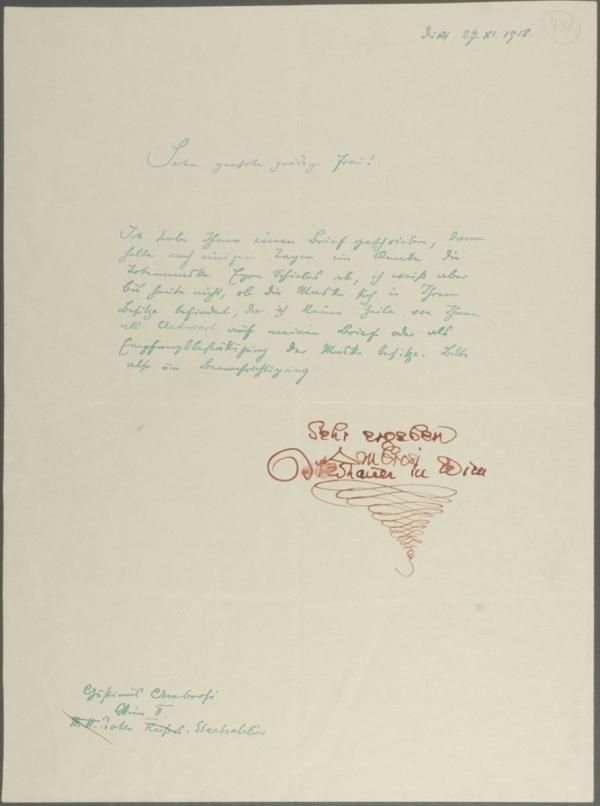 Wien 27. XI. 1918.
738
Sehr geehrte gnädige Frau!
Ich habe Ihnen einen Brief geschrieben, dann
holte nach einigen Tagen ein Knabe die
Totenmaske Egon Schieles ab, ich weiß aber
bis heute nicht, ob die Maske sich in Ihrem
Besitze befindet, da ich keine Zeile von Ihnen
als Antwort auf meinen Brief oder als
Empfangsbestätigung der Maske besitze. Bitte
also um Benachrichtigung
Sehr ergeben
Ambrosi
Bildhauer in Wien
Gustinus Ambrosi
Wien II.
Prater Staatsatelier